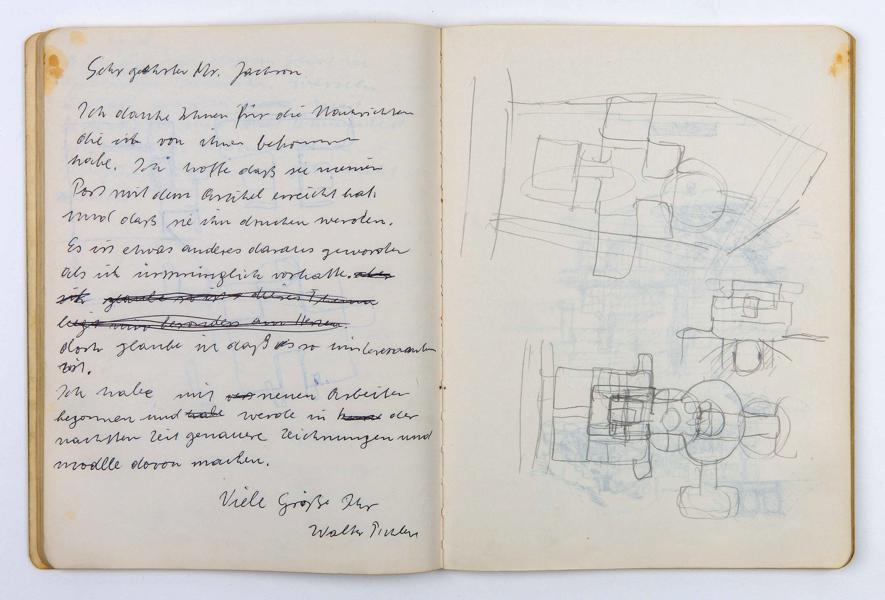 Sehr geehrter Mr. Jackson
Ich danke Ihnen für die Nachrichten
die ich von ihnen bekommen
habe. Ich hoffe daß sie meinen
Post mit dem Artikel erreicht hat
und daß sie ihn drucken werden.
Es ist etwas anderes daraus geworden
als ich ursprünglich vorhatte. aber
ich glaube so ist dieses Thema
liegt mir besonders am Herzen.
doch glaube ich daß es so interessanter
ist.
Ich habe mit neuen Arbeiten
begonnen und habe werde in der
nächsten Zeit genauere Zeichnungen und
modlle davon machen.
Viele Grüße Ihr
Walter Pichler